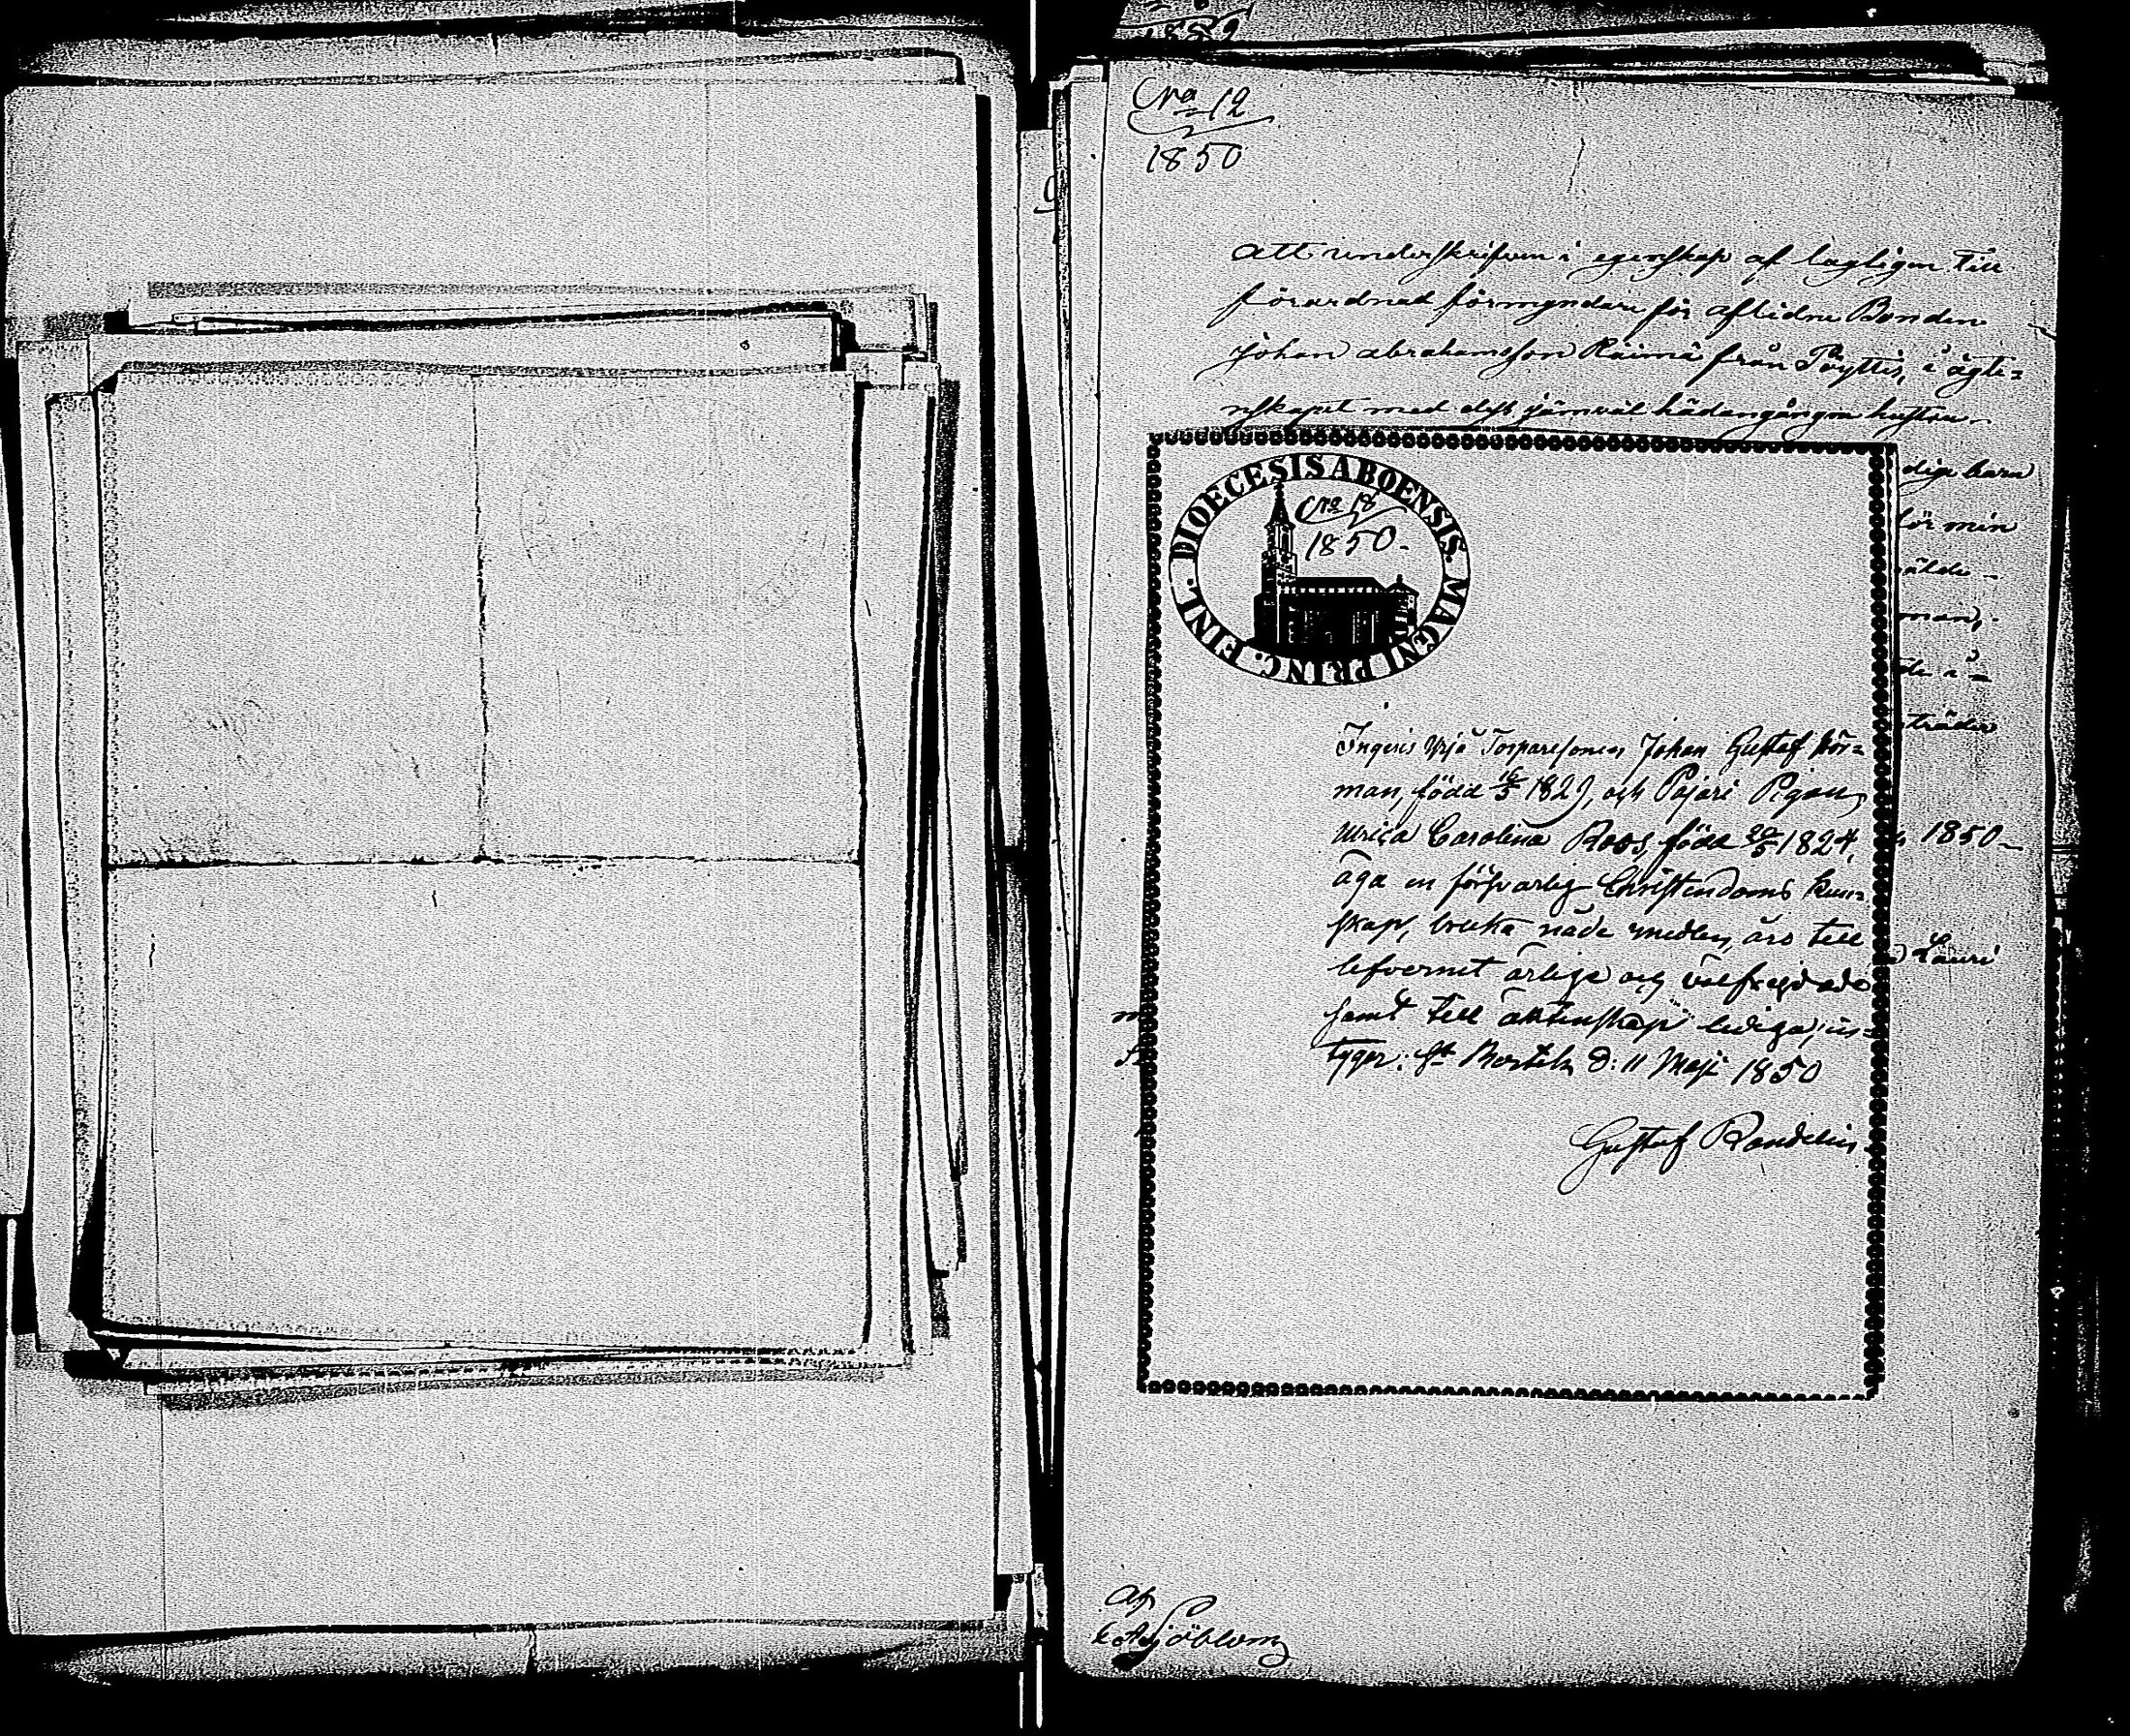 No 12
1850
Att underskrifven i egenskap af lagligen till
förordnad förmyndare för aflidne Bonden
Johan Abrahamsson Raimā från Pöyttis, i ägte=
nskapet med dess jämväl hädangångna hustru
diga barn
för min
man,
de i
träda
1850
Lauri
DIOECESIS ABOENSIS. MAGNI PRINC. FINL.
No 18
1850.
Ingeris Yrjä Torparesonen Johan Gustaf Hör=
man, född 16/3 1829, och Pajari Pigan
Ulrica Carolina Roos, född 1824,
äga en försvarlig Christendoms kun=
skap, bruka nåde medlen, äro till
lefvernet ärliga och välfrejdade
samt till äktenskap lediga; in=
tygar. St Bertils d: 11 Maji 1850
Gustaf Randelin
Af
Sjöblom